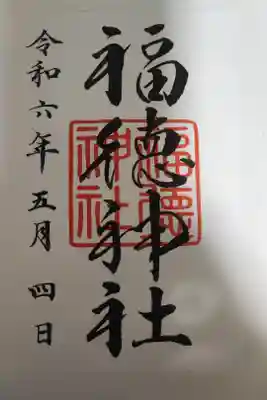 福徳神社
令和六年 五月 四日
福德
神社